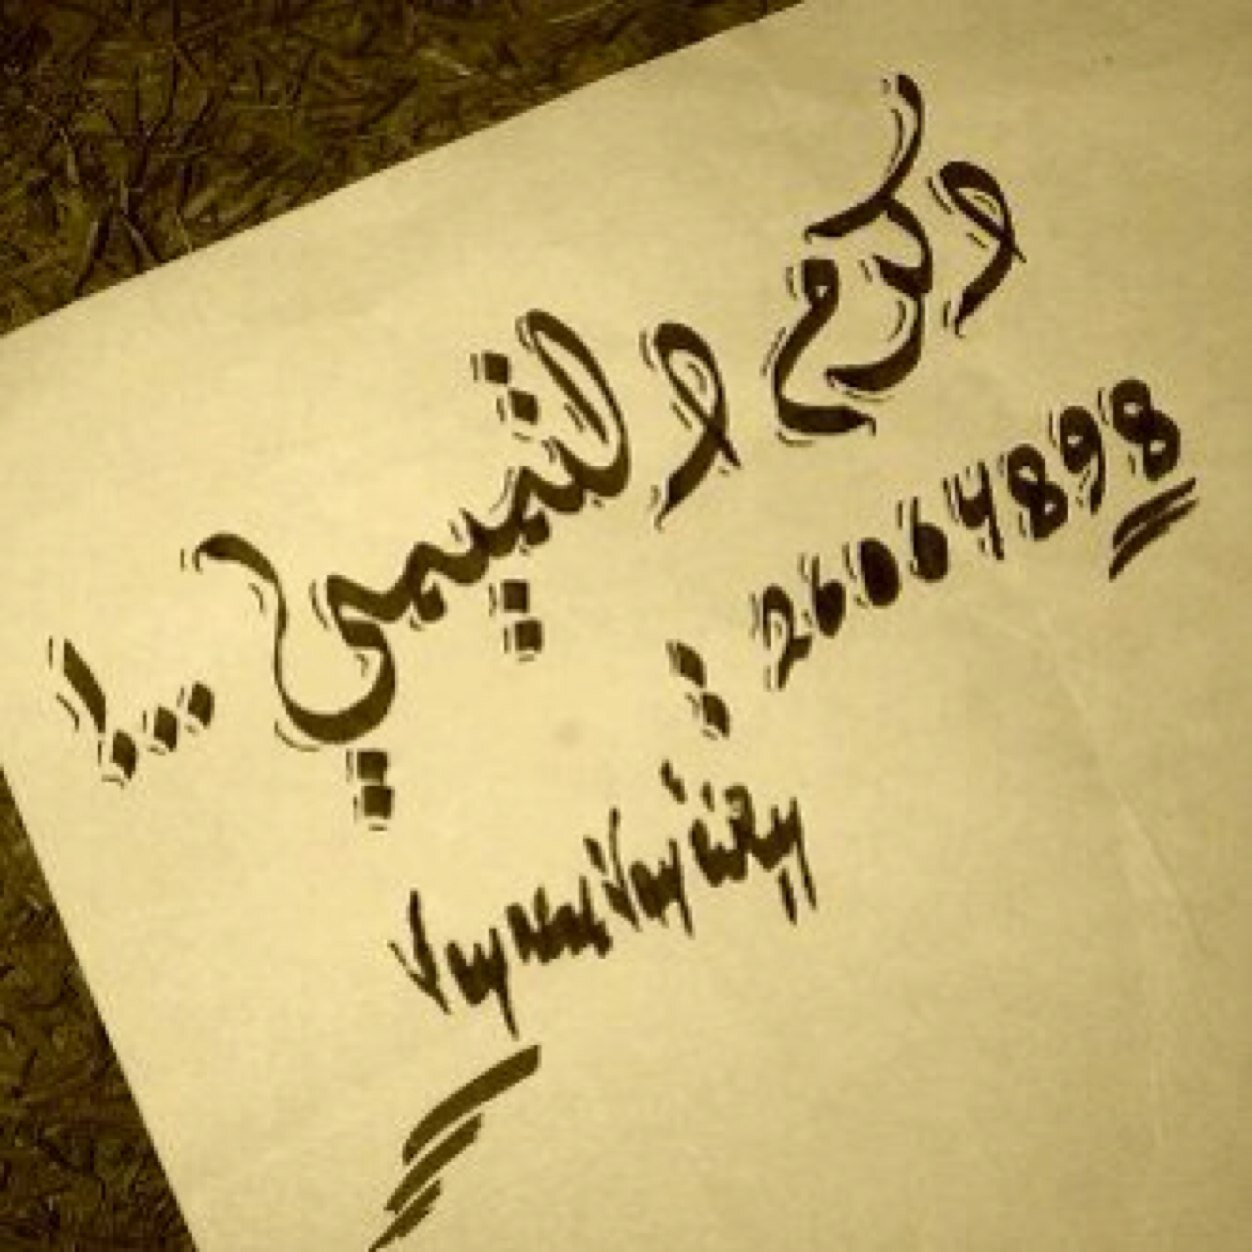 اكرم التميمي ...!
: 26064898